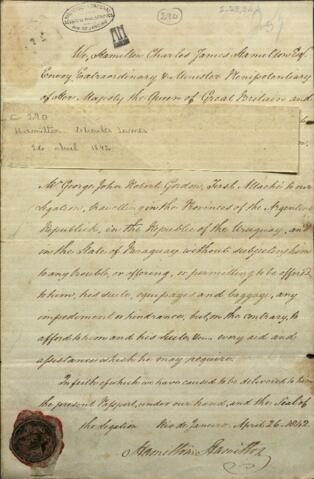 290
We, Hamilton Charles James Hamilton Esq
Envoy Extraordinary & Minister Plenipotentiary
of Her Majesty the Queen of Great Britain and
C 290
Hamilton
26 April 1842
Mr George John Robert Gordon, First Attaché to our
Legation, travelling in the Provinces of the Argentine
Republick, in the Republic of the Uruguay, and
in the State of Paraguay without subjecting him
to any trouble, or offering, or permitting to be offered
to him, his suite, equipages and baggage, any
impediment or hindrance, but, on the contrary, to
afford to him and his Suite, every aid and
assistance which he may require.
In faith of which we have caused to be delivered to him
the present Passport, under our hand, and the Seal of
the Legation Rio de Janeiro April 26. 1842.
Hamilton Hamilton